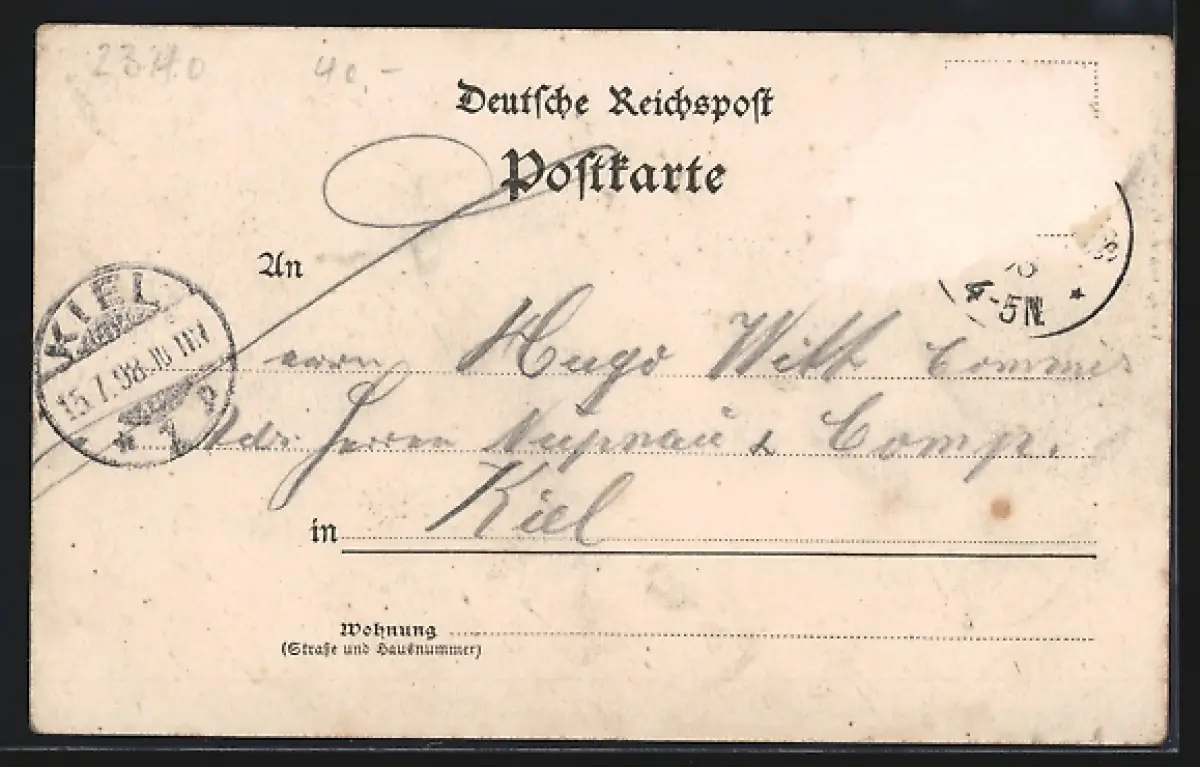 40 -
Deutsche Reichspost
Postkarte
An
KIEL
15.7.98.
* 1 P
-5N. *
Herrn Hugo Witt Commis
Adr. Herren & Comp.
in Kiel
Wohnung
(Straße und Hausnummer)